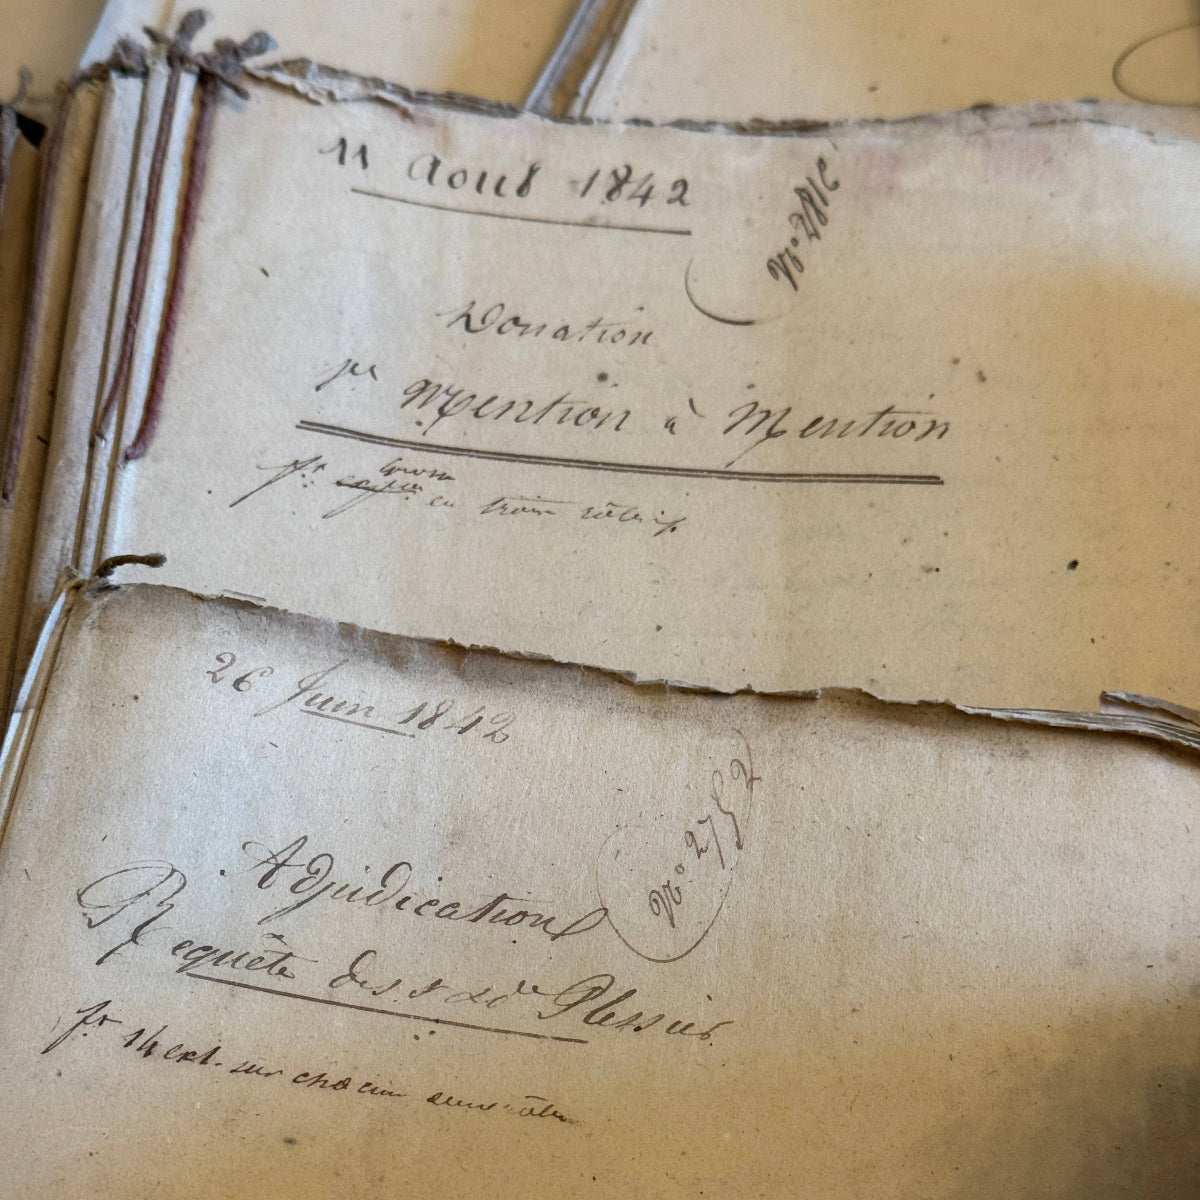 11 Aout 1842
N° 2816
Donation
par Mention à Mention
fr
grosse
en trois rôles
26 Juin 1842
N° 2752
Adjudication
Requête des S. & De Plessier
fr 14 ext. sur chacun